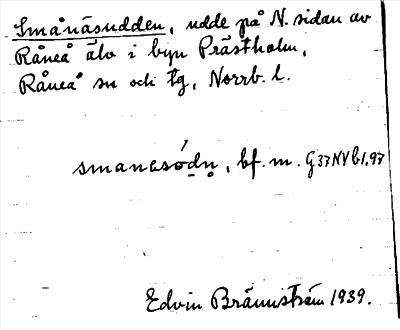 Smånäsudden, udde på N. sidan av
Råneå älv i byn Prästholm,
Råneå sn och tg, Norrb. l.
smanɛsó̱dn̥, bf. m. G37NVb1,97
Edvin Brännström 1939.